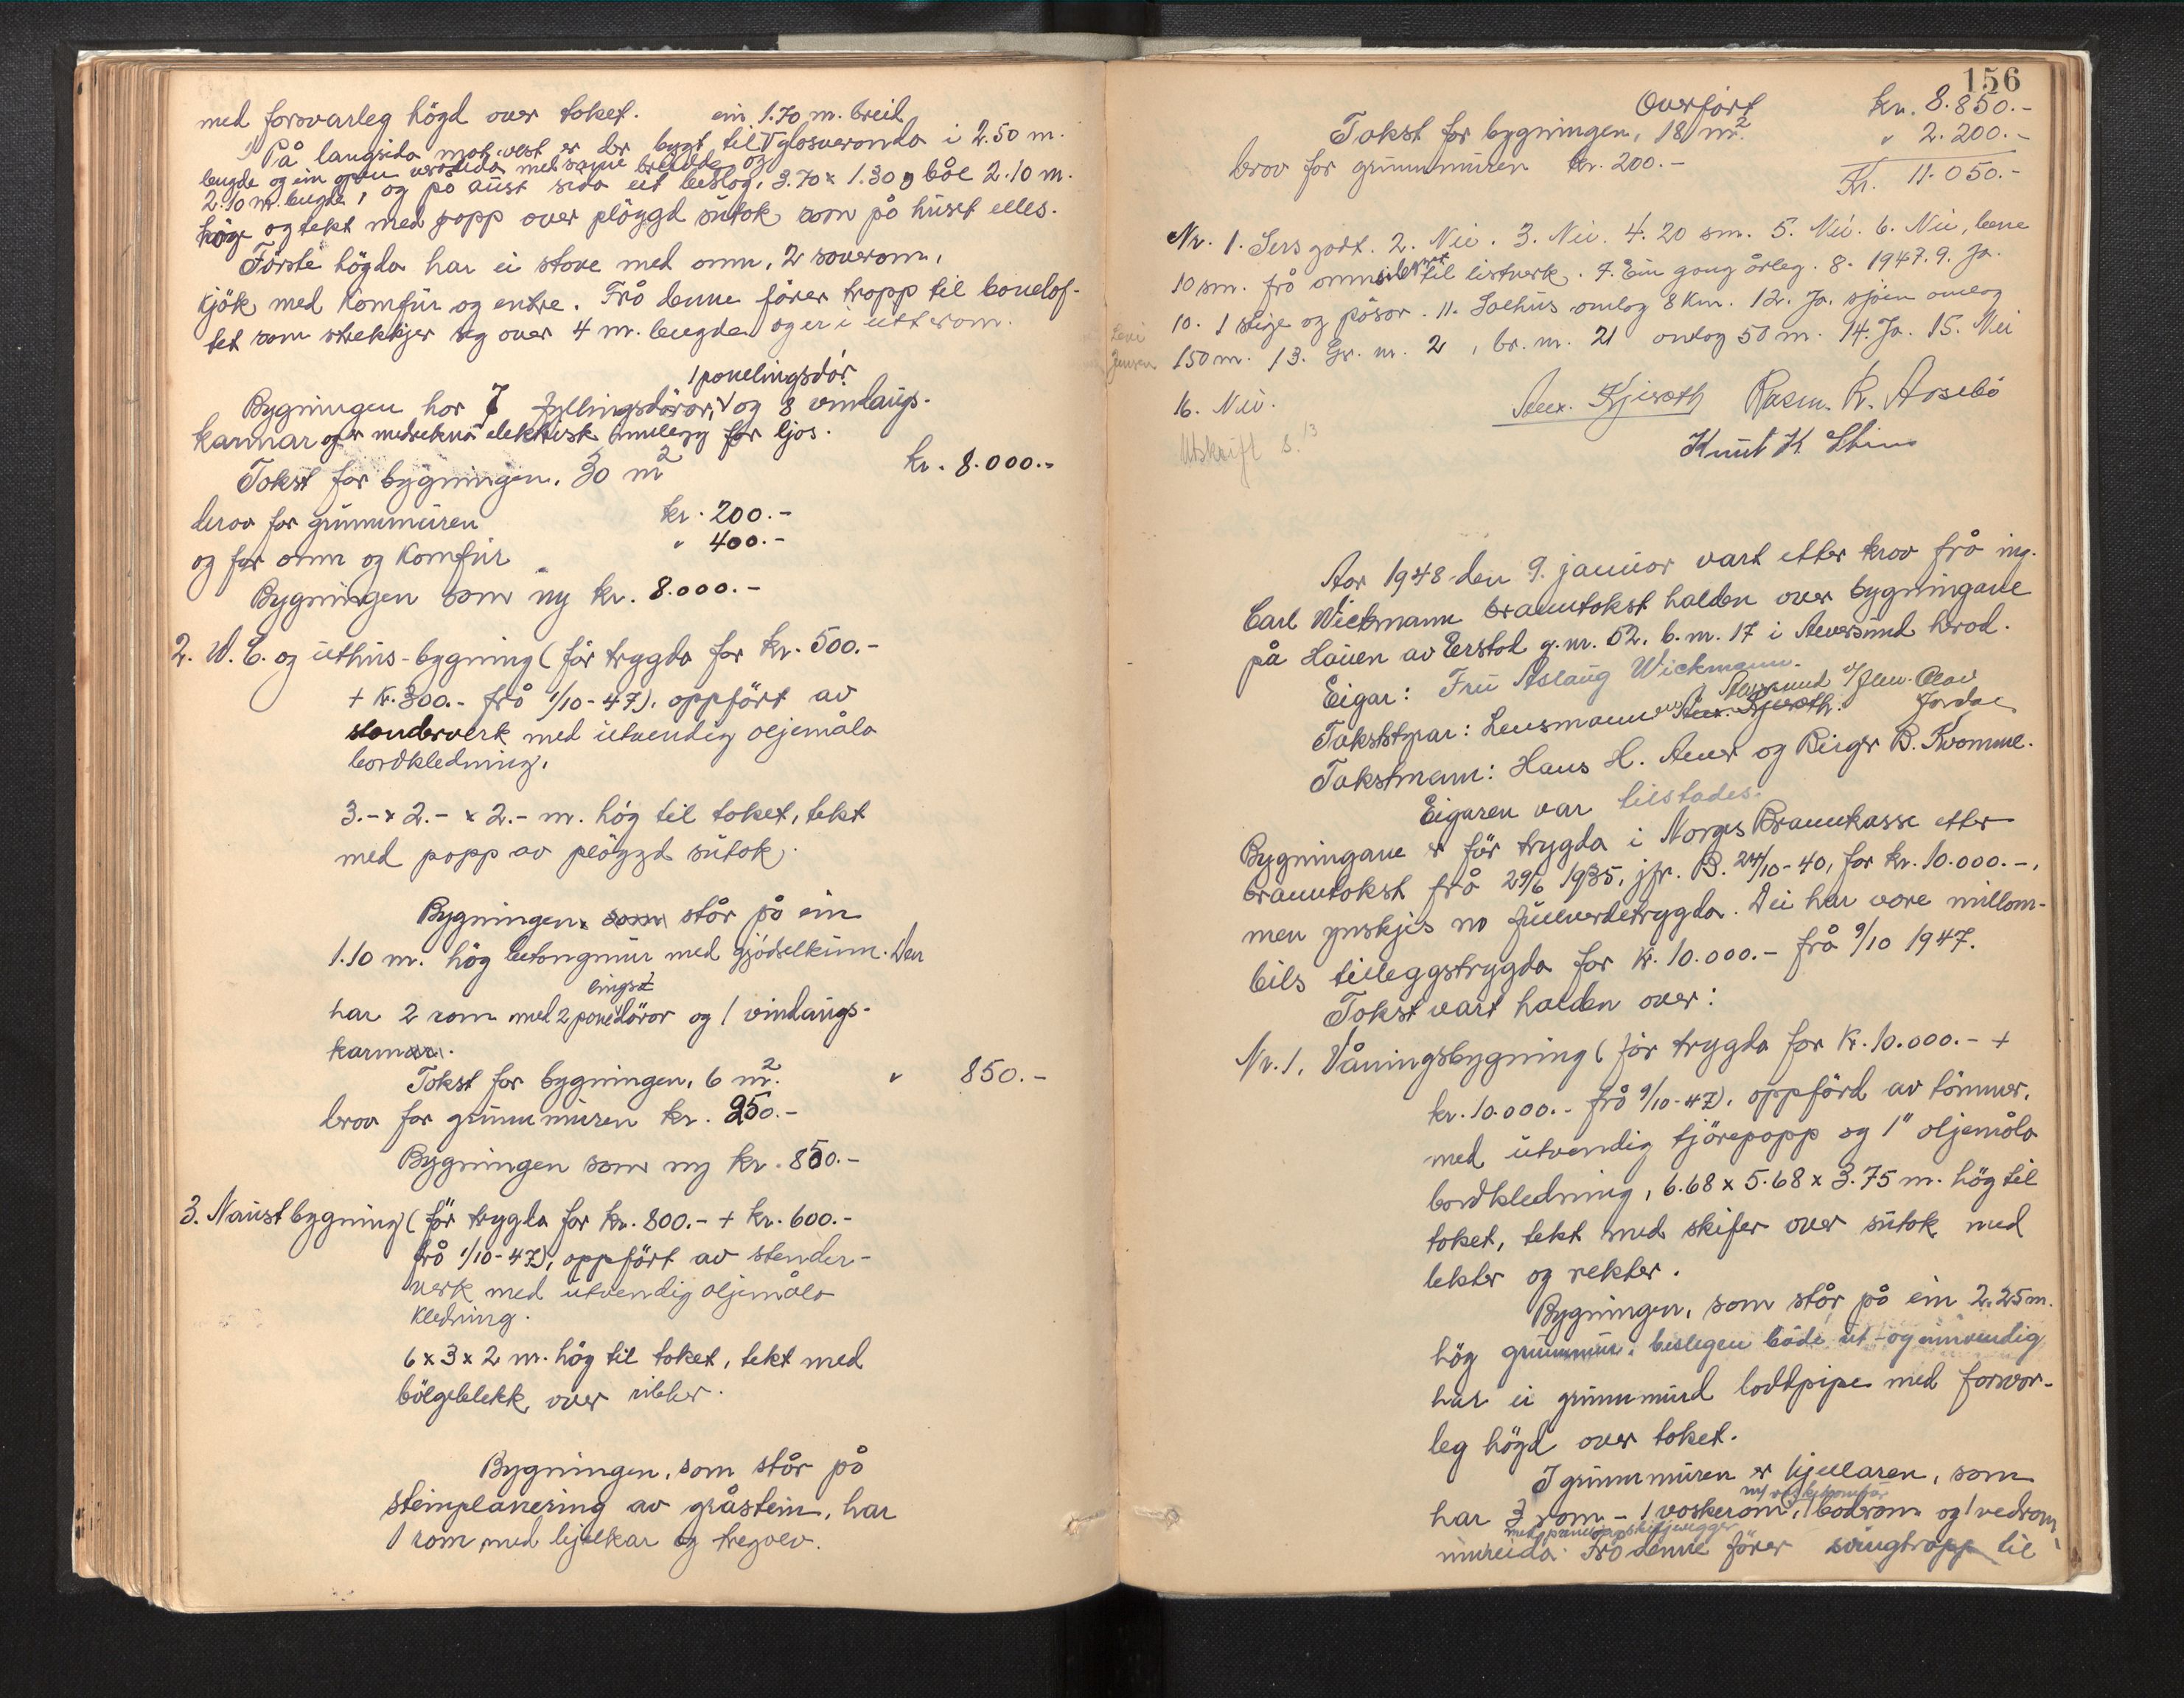 med forsvarleg högd over taket.
På langsida mot vest er der bygt til ein 1.70 m. breid glasveranda i 2.50 m.
lengde og ein open veranda med same breidde og
2.10 m. lengde, og på aust sida eit beslag, 3.70 x 1.30 og båe 2.10 m.
høge og tekt med papp over pløygd sutak som på huset elles.
Første högda har ei stove med omn, 2 soverom,
kjök med komfür og entre. Frå denne fører trapp til bouelof-
tet som strekkjer seg over 4 m. lengda og er i eitt rom.
Bygningen har 7 fyllingsdörar, 1 panelingsdör og 8 vindaugs-
karmar og er medrekna elektrisk innlegg for ljos.
Takst for bygningen, 30 m2 kr. 8.000.-
derav for grunnmuren kr. 200.-
og for omn og komfür " 400.-
Bygningen som ny kr. 8.000.-
2. W.C. og uthus-bygning (før trygda for kr. 500.-
+ kr. 300.- frå 1/10-47), oppført av
standerverk med utvendig oljemåla
bordkledning,
3.- x 2.- x 2.- m. høg til taket, tekt
med papp av pløygd sutak.
Bygningen som står på ein
1.10 m. høg betongmur med gjødselkum. Den
har 2 rom med 2 panelingsdörar og 1 vindaugs-
karmar.
Takst for bygningen, 6 m2. " 850.-
derav for grunnmuren kr. 250.-
Bygningen som ny kr. 850.-
3. Naustbygning (før trygda for kr. 800.- + kr. 600.-
frå 1/10-47), oppført av stender-
verk med utvendig oljemåla
kledning.
6 x 3 x 2 m. høg til taket, tekt med
bölgeblekk over ribber.
Bygningen, som står på
steinplanering av gråstein, har
1 rom med bjelkar og tregolv.
156
Overført kr. 8.850.-
Takst for bygningen, 18 m2. " 2.200.-
derav for grunnmuren kr. 200.-
Kr. 11.050.-
Nr. 1. Sers godt. 2. Nei. 3. Nei. 4. 20 sm. 5. Nei. 6. Nei, berre
10 sm. frå omn til listverk. 7. Ein gong årleg. 8. 1947. 9. Ja.
10. 1 stige og pøsar. 11. Salhus omlag 8 km. 12. Ja, sjøen omlag
150 m. 13. Gr. nr. 2, br. nr. 21 omlag 50 m. 14. Ja. 15. Nei
16. Nei.
Alex. Kjiroth Rasm. R. Åsebö
Knut K
Utskrift s. 13
Aar 1948 den 9. januar vart etter krav frå ing.
Carl Wickmann branntakst halden over bygningane
på Haüen av Erstad g.nr. 52. b.nr. 17 i Alversund herad.
Eigar: Fru Aslaug Wickmann.
Takststyrar: Lensmann Alex. Kjiroth. Alversund v/ Olav Jordal
Takstmenn: Hans H. Alver og Birger B. Kvamme.
Eigaren var tilstades.
Bygningane er før trygda i Norges Brannkasse etter
branntakst frå 29/6 1935, jfr. B. 24/10-40, for kr. 10.000.-,
men ynskjis no fullverdetrygda. Dei har vore millom-
bils tilleggstrygda for kr. 10.000.- frå 9/10 1947.
Takst vart halden over:
Nr. 1. Våningsbygning (før trygda for kr. 10.000.- +
kr. 10.000.- frå 9/10-47), oppførd av tömmer,
med utvendig tjørepapp og 1" oljemåla
bordkledning, 6.68 x 5.68 x 3.75 m. høg til
taket, tekt med skifer over sutak med
lekter og rekter.
Bygningen, som står på ein 2.25 m.
høg grunnmur, beslegen både ut- og innvendig
har ei grunnmurd loddpipe med forsvar-
leg högd over taket.
I grunnmuren er kjellaren, som
har 3 rom - 1 vaskerom, 1 bodrom og 1 vedrom
Frå denne fører svingtrapp til